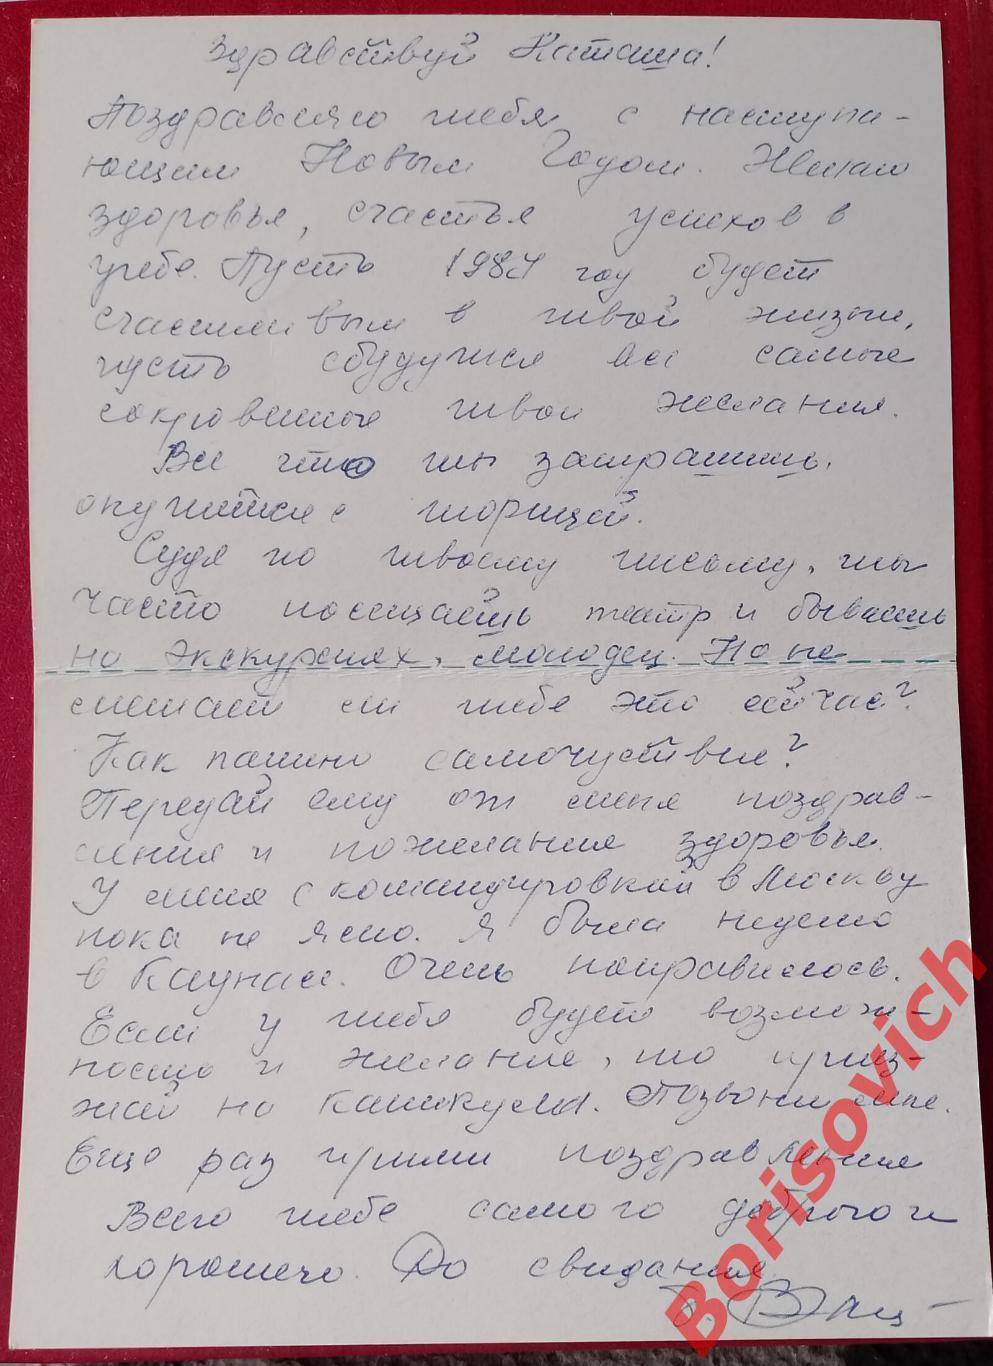 Здравствуй Наташа!
Поздравляю тебя с наступа-
ющим Новым Годом. Желаю
здоровья, счастья успехов в
учебе. Пусть 1984 год будет
счастливым в твоей жизни,
пусть сбудутся все самые
сокровенные твои желания.
Все что ты запрашиваешь,
окупится с торицей.
Судя по твоему письму, ты
часто посещаешь театр и бываешь
на экскурсиях, молодец. Но не
мешает ли тебе это сейчас?
Как папино самочуствие?
Передай ему от меня поздрав-
ления и пожелания здоровья.
У меня с командировкой в Москву
пока не ясно. Я была неделю
в Каунасе. Очень понравилось.
Если у тебя будет возмож-
ность и желание, то приез-
жай на каникулы. Позвони мне.
Еще раз прими поздравления
Всего тебе самого доброго и
хорошего. До свидания.
Borisovich